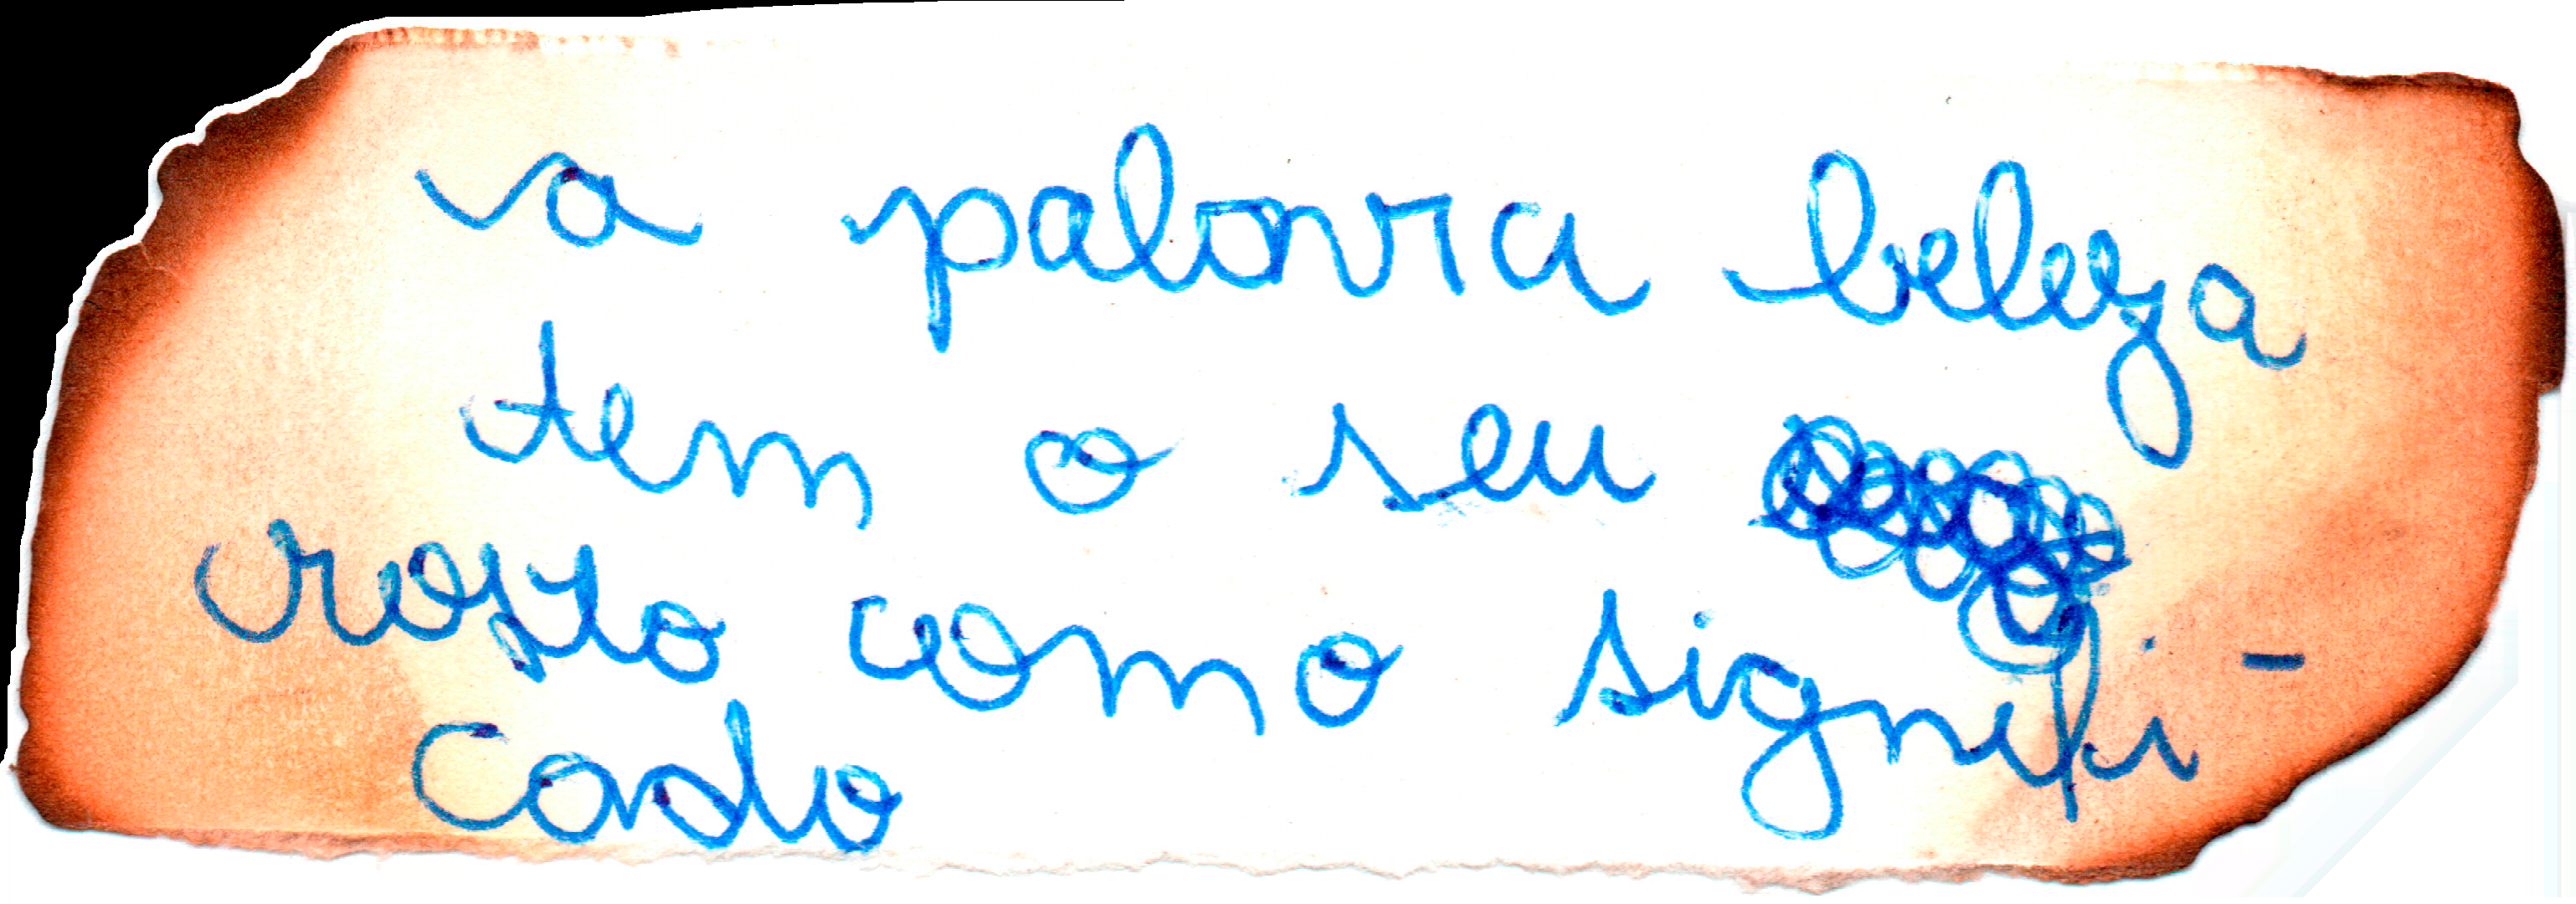 a palavra beleza
tem o seu
rosto como signifi-
cado